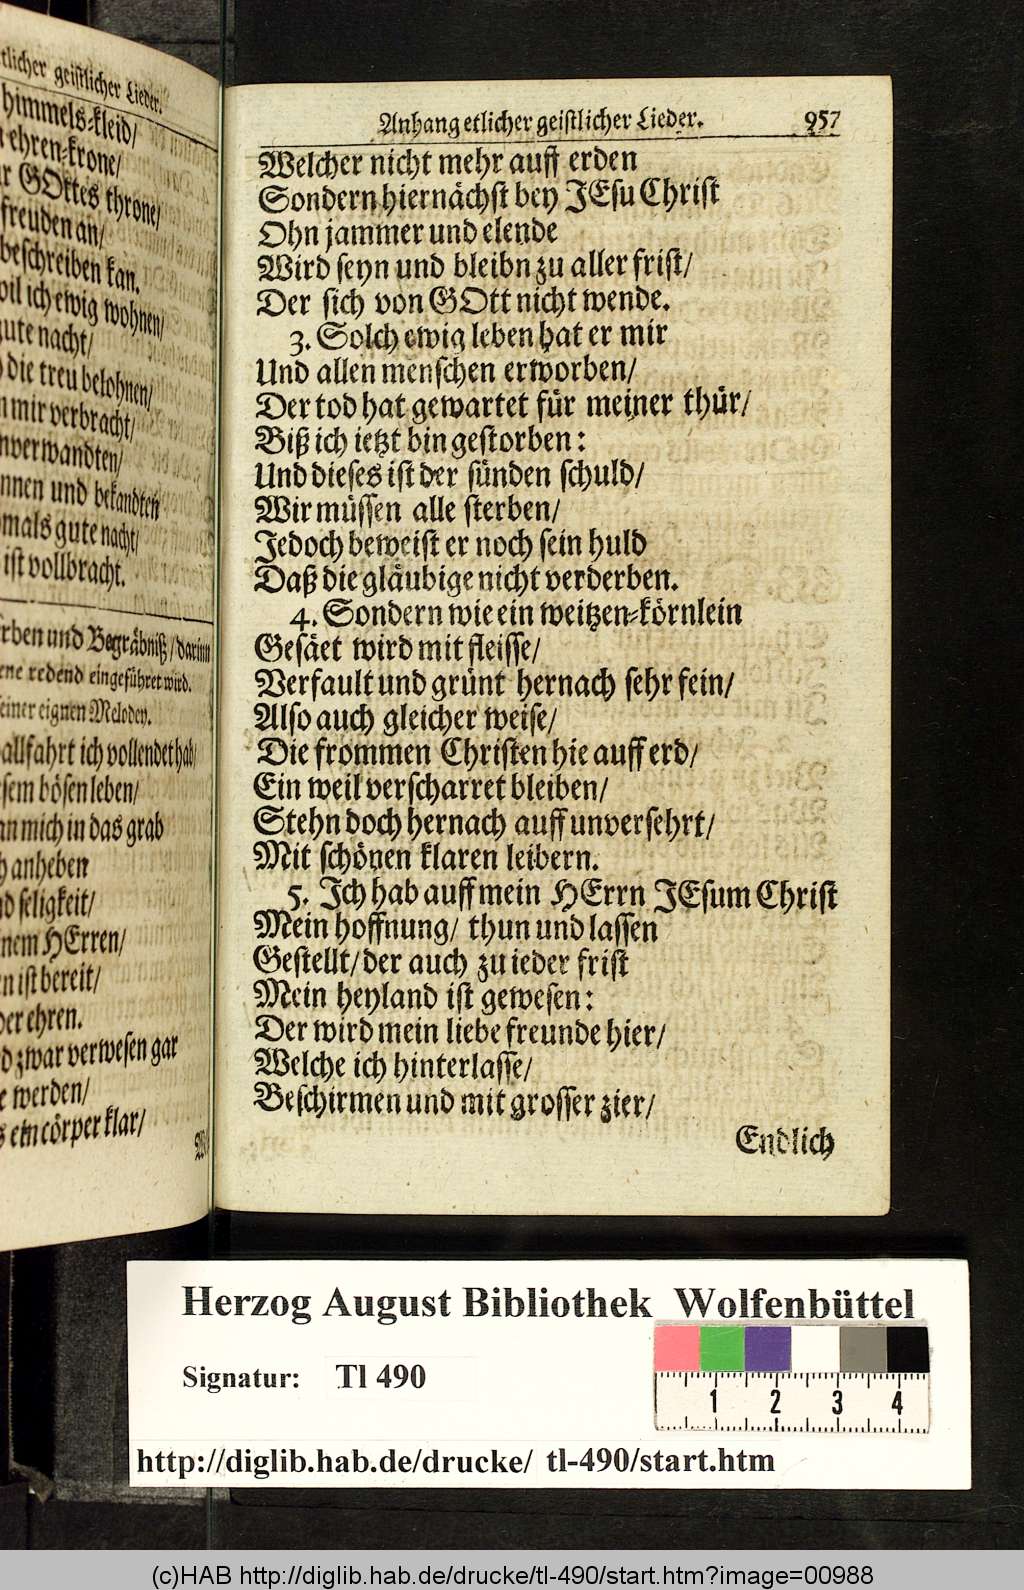 tlicher geistlicher Lieder.
himmels-kleid/
ehren-krone/
GOttes throne/
freuden an/
beschreiben kan.
ich ewig wohnen/
gute nacht/
die treu belohnen/
mir verbracht/
nverwandten/
nnen und bekandten
mals gute nacht/
ist vollbracht.
rben und Begräbniß/ darinn
ene redend eingeführet wird.
einer eignen Melodey.
allfahrt ich vollendet hab/
sem bösen leben/
an mich in das grab
anheben
nd seligkeit/
nem HErren/
ist bereit/
der ehren.
d zwar verwesen gar
werden/
ein cörper klar/
Anhang etlicher geistlicher Lieder. 957
Welcher nicht mehr auff erden
Sondern hiernächst bey JEsu Christ
Ohn jammer und elende
Wird seyn und bleibn zu aller frist/
Der sich von GOtt nicht wende.
3. Solch ewig leben hat er mir
Und allen menschen erworben/
Der tod hat gewartet für meiner thür/
Biß ich ietzt bin gestorben:
Und dieses ist der sünden schuld/
Wir müssen alle sterben/
Jedoch beweist er noch sein huld
Daß die gläubige nicht verderben.
4. Sondern wie ein weitzen-körnlein
Gesäet wird mit fleisse/
Verfault und grünt hernach sehr fein/
Also auch gleicher weise/
Die frommen Christen hie auff erd/
Ein weil verscharret bleiben/
Stehn doch hernach auff unversehrt/
Mit schönen klaren leibern.
5. Ich hab auff mein HErrn JEsum Christ
Mein hoffnung/ thun und lassen
Gestellt/ der auch zu ieder frist
Mein heyland ist gewesen:
Der wird mein liebe freunde hier/
Welche ich hinterlasse/
Beschirmen und mit grosser zier/
Endlich
Herzog August Bibliothek Wolfenbüttel
Signatur: Tl 490
1 2 3 4
http://diglib.hab.de/drucke/ tl-490/start.htm
(c)HAB http://diglib.hab.de/drucke/tl-490/start.htm?image=00988